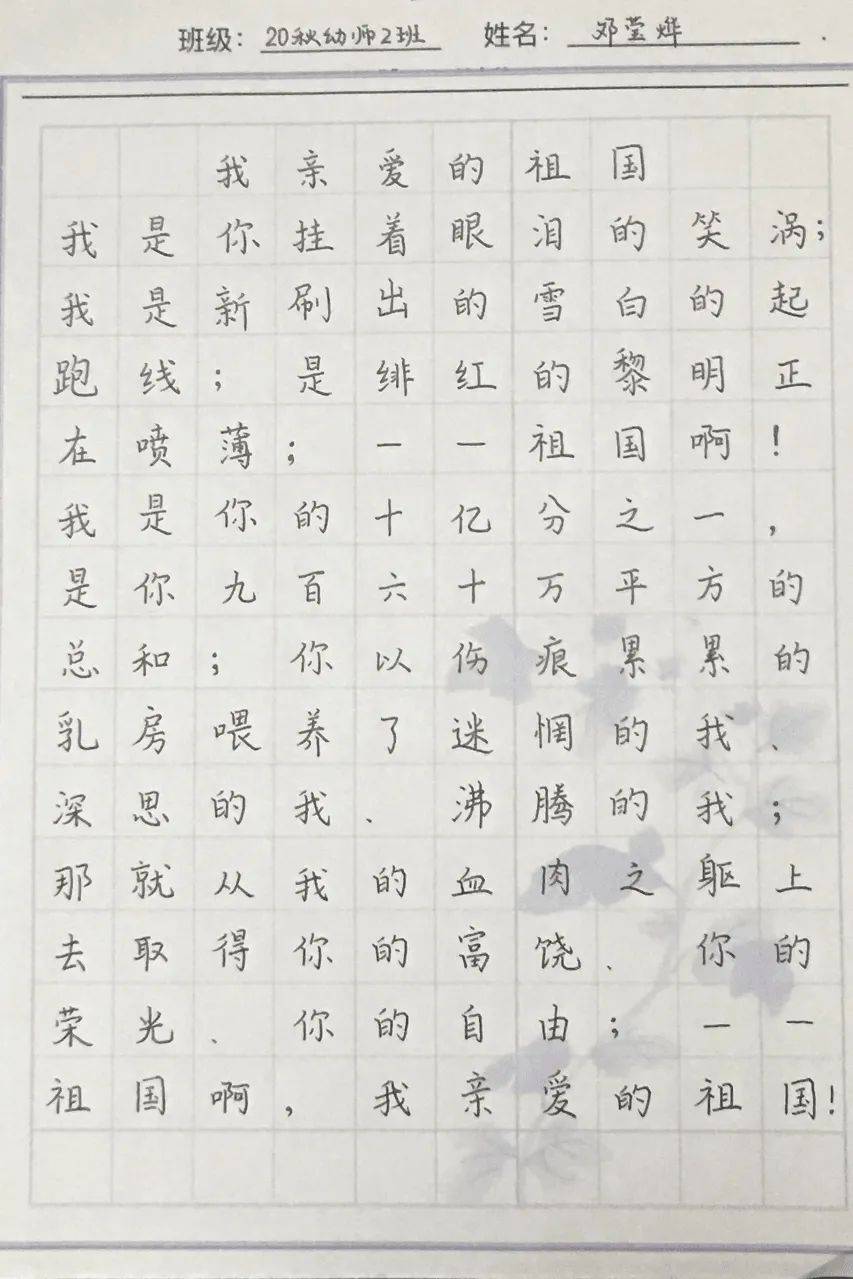 班级：20秋幼师2班 姓名：邓莹烨
我亲爱的祖国
我是你挂着眼泪的笑涡；
我是新刷出的雪白的起
跑线；是绯红的黎明正
在喷薄；——祖国啊！
我是你的十亿分之一，
是你九百六十万平方的
总和；你以伤痕累累的
乳房喂养了迷惘的我、
深思的我、沸腾的我；
那就从我的血肉之躯上
去取得你的富饶、你的
荣光、你的自由；——
祖国啊，我亲爱的祖国！